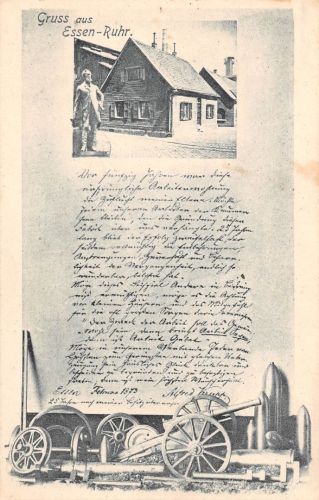 Gruss aus
Essen-Ruhr.
Vor fünfzig Jahren war diese
ursprüngliche Arbeiterwohnung
die Zuflucht meiner Eltern. Möchte
jedem unserer Arbeiter der Kummer
fern bleiben, den die Gründung dieser
Fabrik über uns verhängte. 25 Jahre
lang blieb der Erfolg zweifelhaft, der
seitdem allmählig die Entbehrungen,
Anstrengungen, Zuversicht und Beharr-
lichkeit der Vergangenheit endlich so
wunderbar belohnt hat.
Möge dieses Beispiel Andere in Bedräng-
niß ermuthigen, möge es die Achtung
vor kleinen Häusern und das Mitgefühl
für die oft großen Sorgen darin vermehren.
Der Zweck der Arbeit soll das Gemein-
wohl sein, dann bringt Arbeit Segen,
dann ist Arbeit Gebet.
Möge in unserem Verbande Jeder vom
Höchsten zum Geringsten mit gleicher Ueber-
zeugung sein häusliches Glück dankbar und
bescheiden zu begründen und zu befestigen
streben, dann ist mein höchster Wunsch erfüllt.
Essen Februar 1873 Alfred Krupp.
25 Jahre nach meiner Besitzübernahme